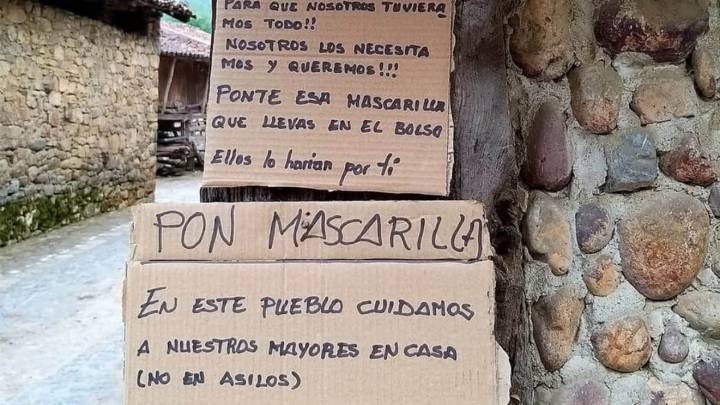 PARA QUE NOSOTROS TUVIERA
MOS TODO!!
NOSOTROS LOS NECESITA
MOS Y QUEREMOS!!!
PONTE ESA MASCARILLA
QUE LLEVAS EN EL BOLSO
Ellos lo harían por ti
PON MASCARILL(A)
EN ESTE PUEBLO CUIDAMOS
A NUESTROS MAYORES EN CASA
(NO EN ASILOS)